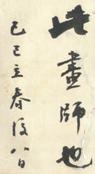 此畫師也
己巳立春後八日